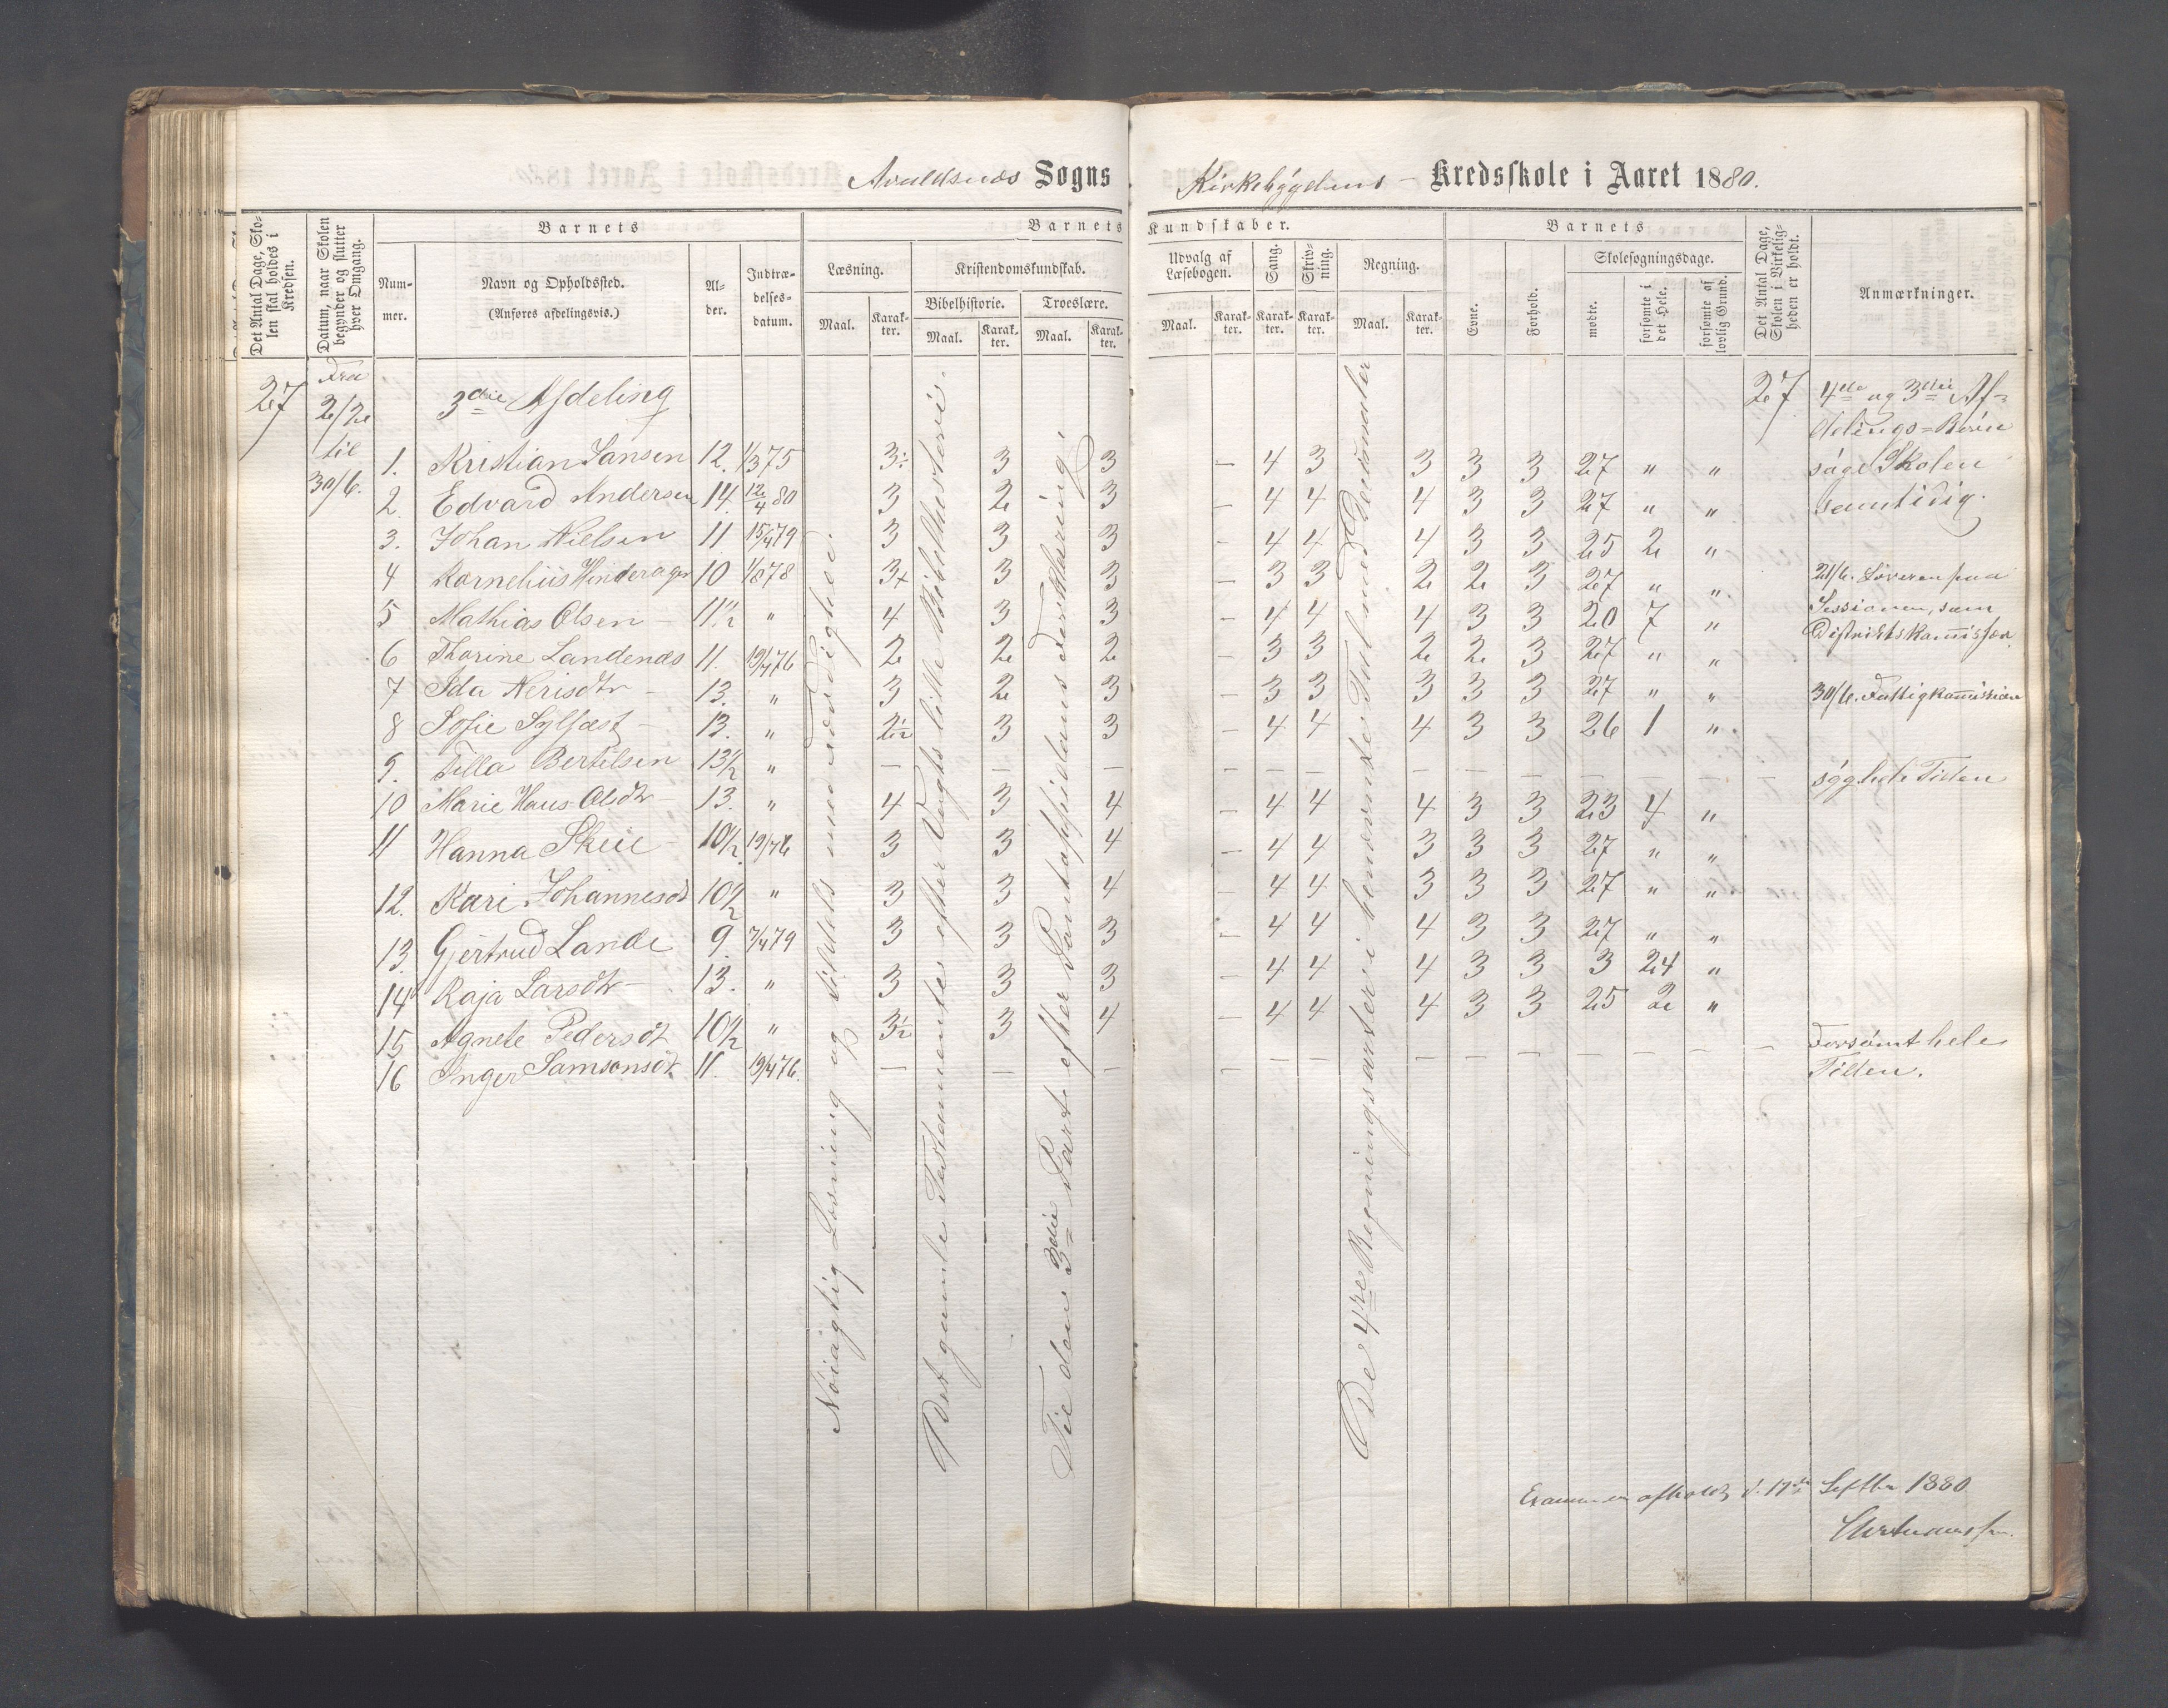 Avaldsnes Sogns Kirkebygdens Kredsskole i Aaret 1880.
Det Antal Dage, Skolen skal holdes i Kredsen.
Datum, naar Skolen begynder og slutter hver Omgang.
Barnets
Nummer.
Navn og Opholdssted. (Anføres afdelingsvis.)
Alder.
Indtrædelsesdatum.
Barnets Kundskaber.
Læsning. Maal. Karakter.
Kristendomskundskab.
Bibelhistorie. Maal. Karakter.
Troeslære. Maal. Karakter.
Udvalg af Læsebogen. Maal. Karakter.
Sang. Karakter.
Skrivning. Karakter.
Regning. Maal. Karakter.
Barnets
Evne.
Forhold.
Skolesøgningsdage.
mødte.
forsømte i det Hele.
forsømte af lovlig Grund.
Det Antal Dage, Skolen i Virkeligheden er holdt.
Anmærkninger.
27 Fra 2/2 til 30/6. 3die Afdeling 27
1. Kristian Jansen 12. 1/3 75 3÷ 3 3 – 4 3 3 3 3 27 " "
2. Edvard Andersen 14. 12/4 80 3 2 3 – 4 4 4 3 3 27 " "
3. Johan Nielsen 11 15/4 79 3 3 3 – 4 4 4 3 3 25 2 "
4 Kornelius Hinderager 10 1/8 78 3+ 3 3 – 3 3 2 2 3 27 " "
5 Mathias Olsen – 11 1/2 " 4 3 3 – 4 4 4 3 3 20 7 "
6 Thorine Landenæs 11. 19/4 76 2 2 2 – 3 3 2 2 3 27 " "
7 Ida Nerisdtr – 13. " 3 2 3 – 3 3 3 3 3 27 " "
8 Sofie Sylfæst – 13. " 2 1/2 3 3 – 4 4 4 3 3 26 1 "
9. Tilla Bertilsen 13 1/2 " – – – – – – – – – – – – –
10 Marie Haus-Olsdtr – 13. " 4 3 4 – 4 4 4 3 3 23 4 "
11 Hanna Skeie – 10 1/2 19/4 76 3 3 4 – 4 4 3 3 3 27 " "
12. Kari Johannesdt 10 1/2 " 3 3 4 – 4 4 3 3 3 27 " "
13. Gjertrud Lande 9. 7/4 79 3 3 3 – 4 4 4 3 3 27 " "
14 Raja Larsdtr – 13. " 3 3 3 – 4 4 4 3 3 3 24 "
15 Agnete Pedersdt 10 1/2 " 3 1/2 3 4 – 4 4 4 3 3 25 2 "
16 Inger Samsonsdt. 11. 19/4 76. – – – – – – – – – – – – –
Nøiagtig Læsning og tildels med Færdighed.
Det gamle Testamente efter Vogts lille Bibelhistorie.
Til den 3die Part efter Pontoppidans Forklaring.
De 4re Regningsarter i benævnte Tal med
4de og 3die Af-
delings-Børn
søge Skolen
samtidig.
21/6. Læreren paa
Sessionen, som
Distriktskommissær.
30/6. Fattigkommission
syg hele Tiden
Forsømt hele
Tiden.
Examen afholdt d. 17de Septbr 1880